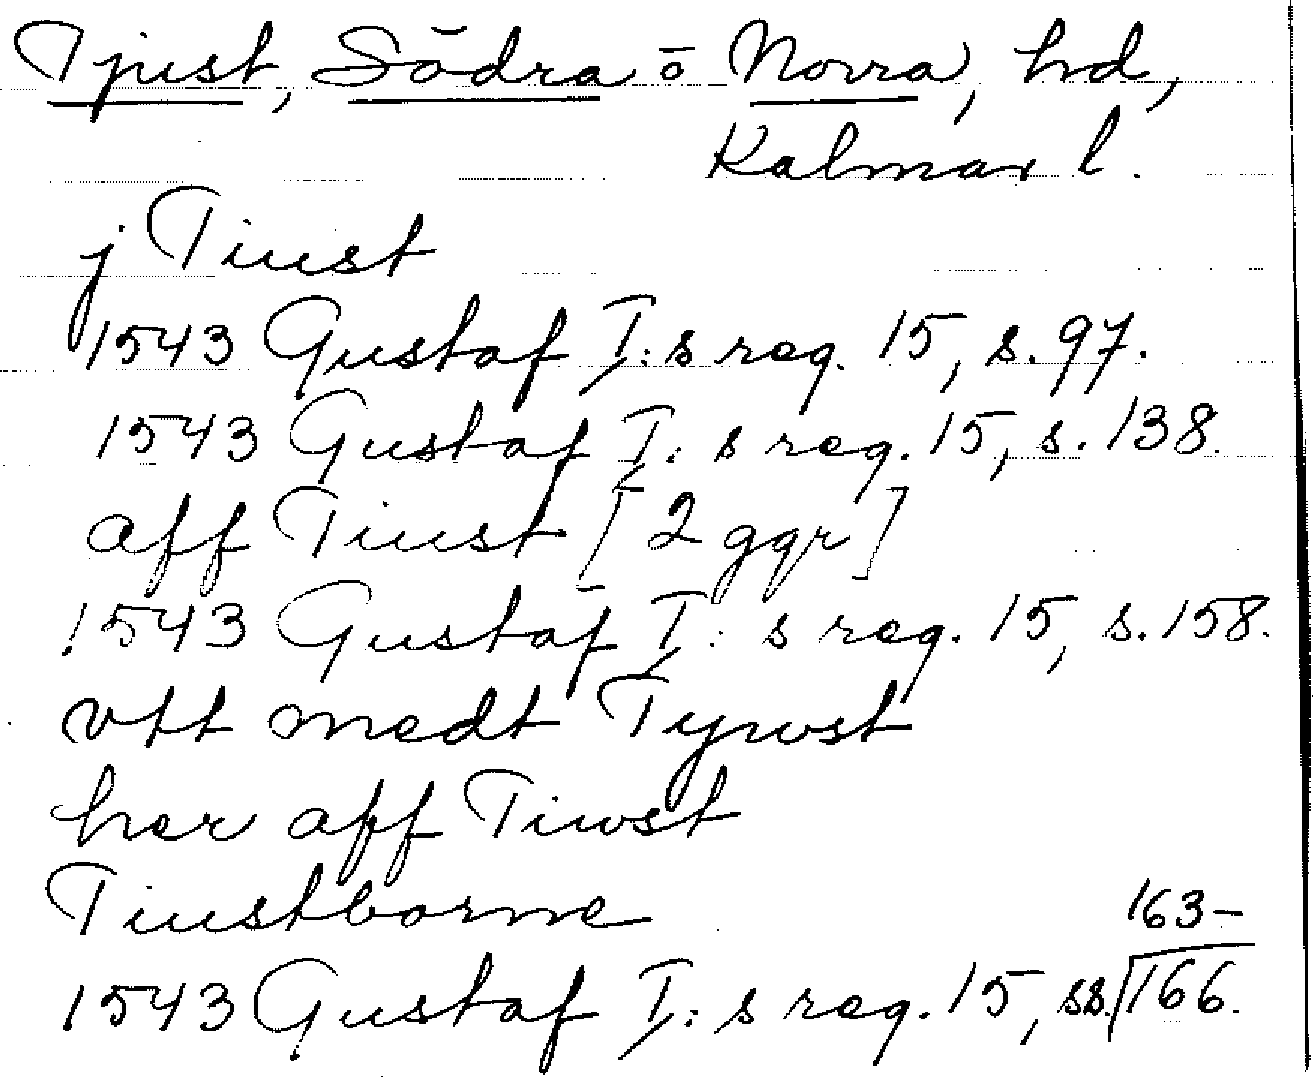 Tjust, Södra ō Norra, hd,
Kalmar l.
j Tiust
1543 Gustaf I:s reg. 15, s. 97.
1543 Gustaf I:s reg. 15, s. 138.
aff Tiust [2 ggr]
1543 Gustaf I:s reg. 15, s. 158.
vtt medt Tywst
her aff Tiwst
Tiustborne
163-
1543 Gustaf I:s reg. 15, ss. 166.